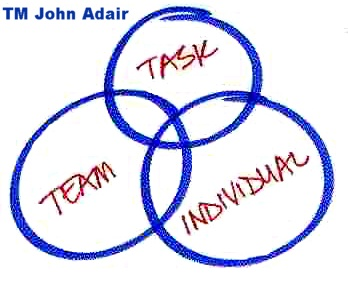 TM John Adair
TASK
TEAM
INDIVIDUAL